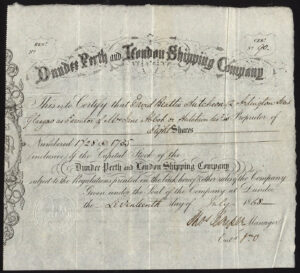 CERT
CERT
No 90.
Dundee Perth and London Shipping Company
This is to Certify that David Watter Hutcheson
Glasgow as Executor of Mrs Jane
is Proprietor of
Eight Shares
Numbered 1728 @ 1735
inclusive of the Capital Stock of the
Dundee Perth and London Shipping Company
subject to the Regulations printed on the back hereof & other rules of the Company
Given under the Seal of the Company at Dundee
the Seventeenth day of July 1868
Thos Manager